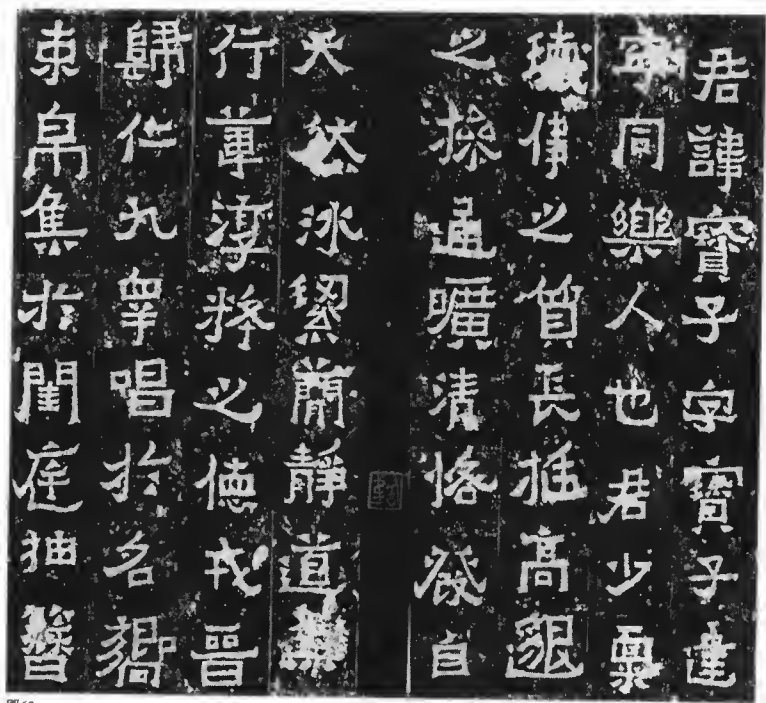 君諱寶子字寶子建
寧同樂人也君少稟
瓌偉之質長挺高邈
之操通曠清恪發自
天然冰絜簡靜道兼
行葦淳粹之德戎晉
歸仁九皋唱於名嚮
束帛集於閨庭抽簪